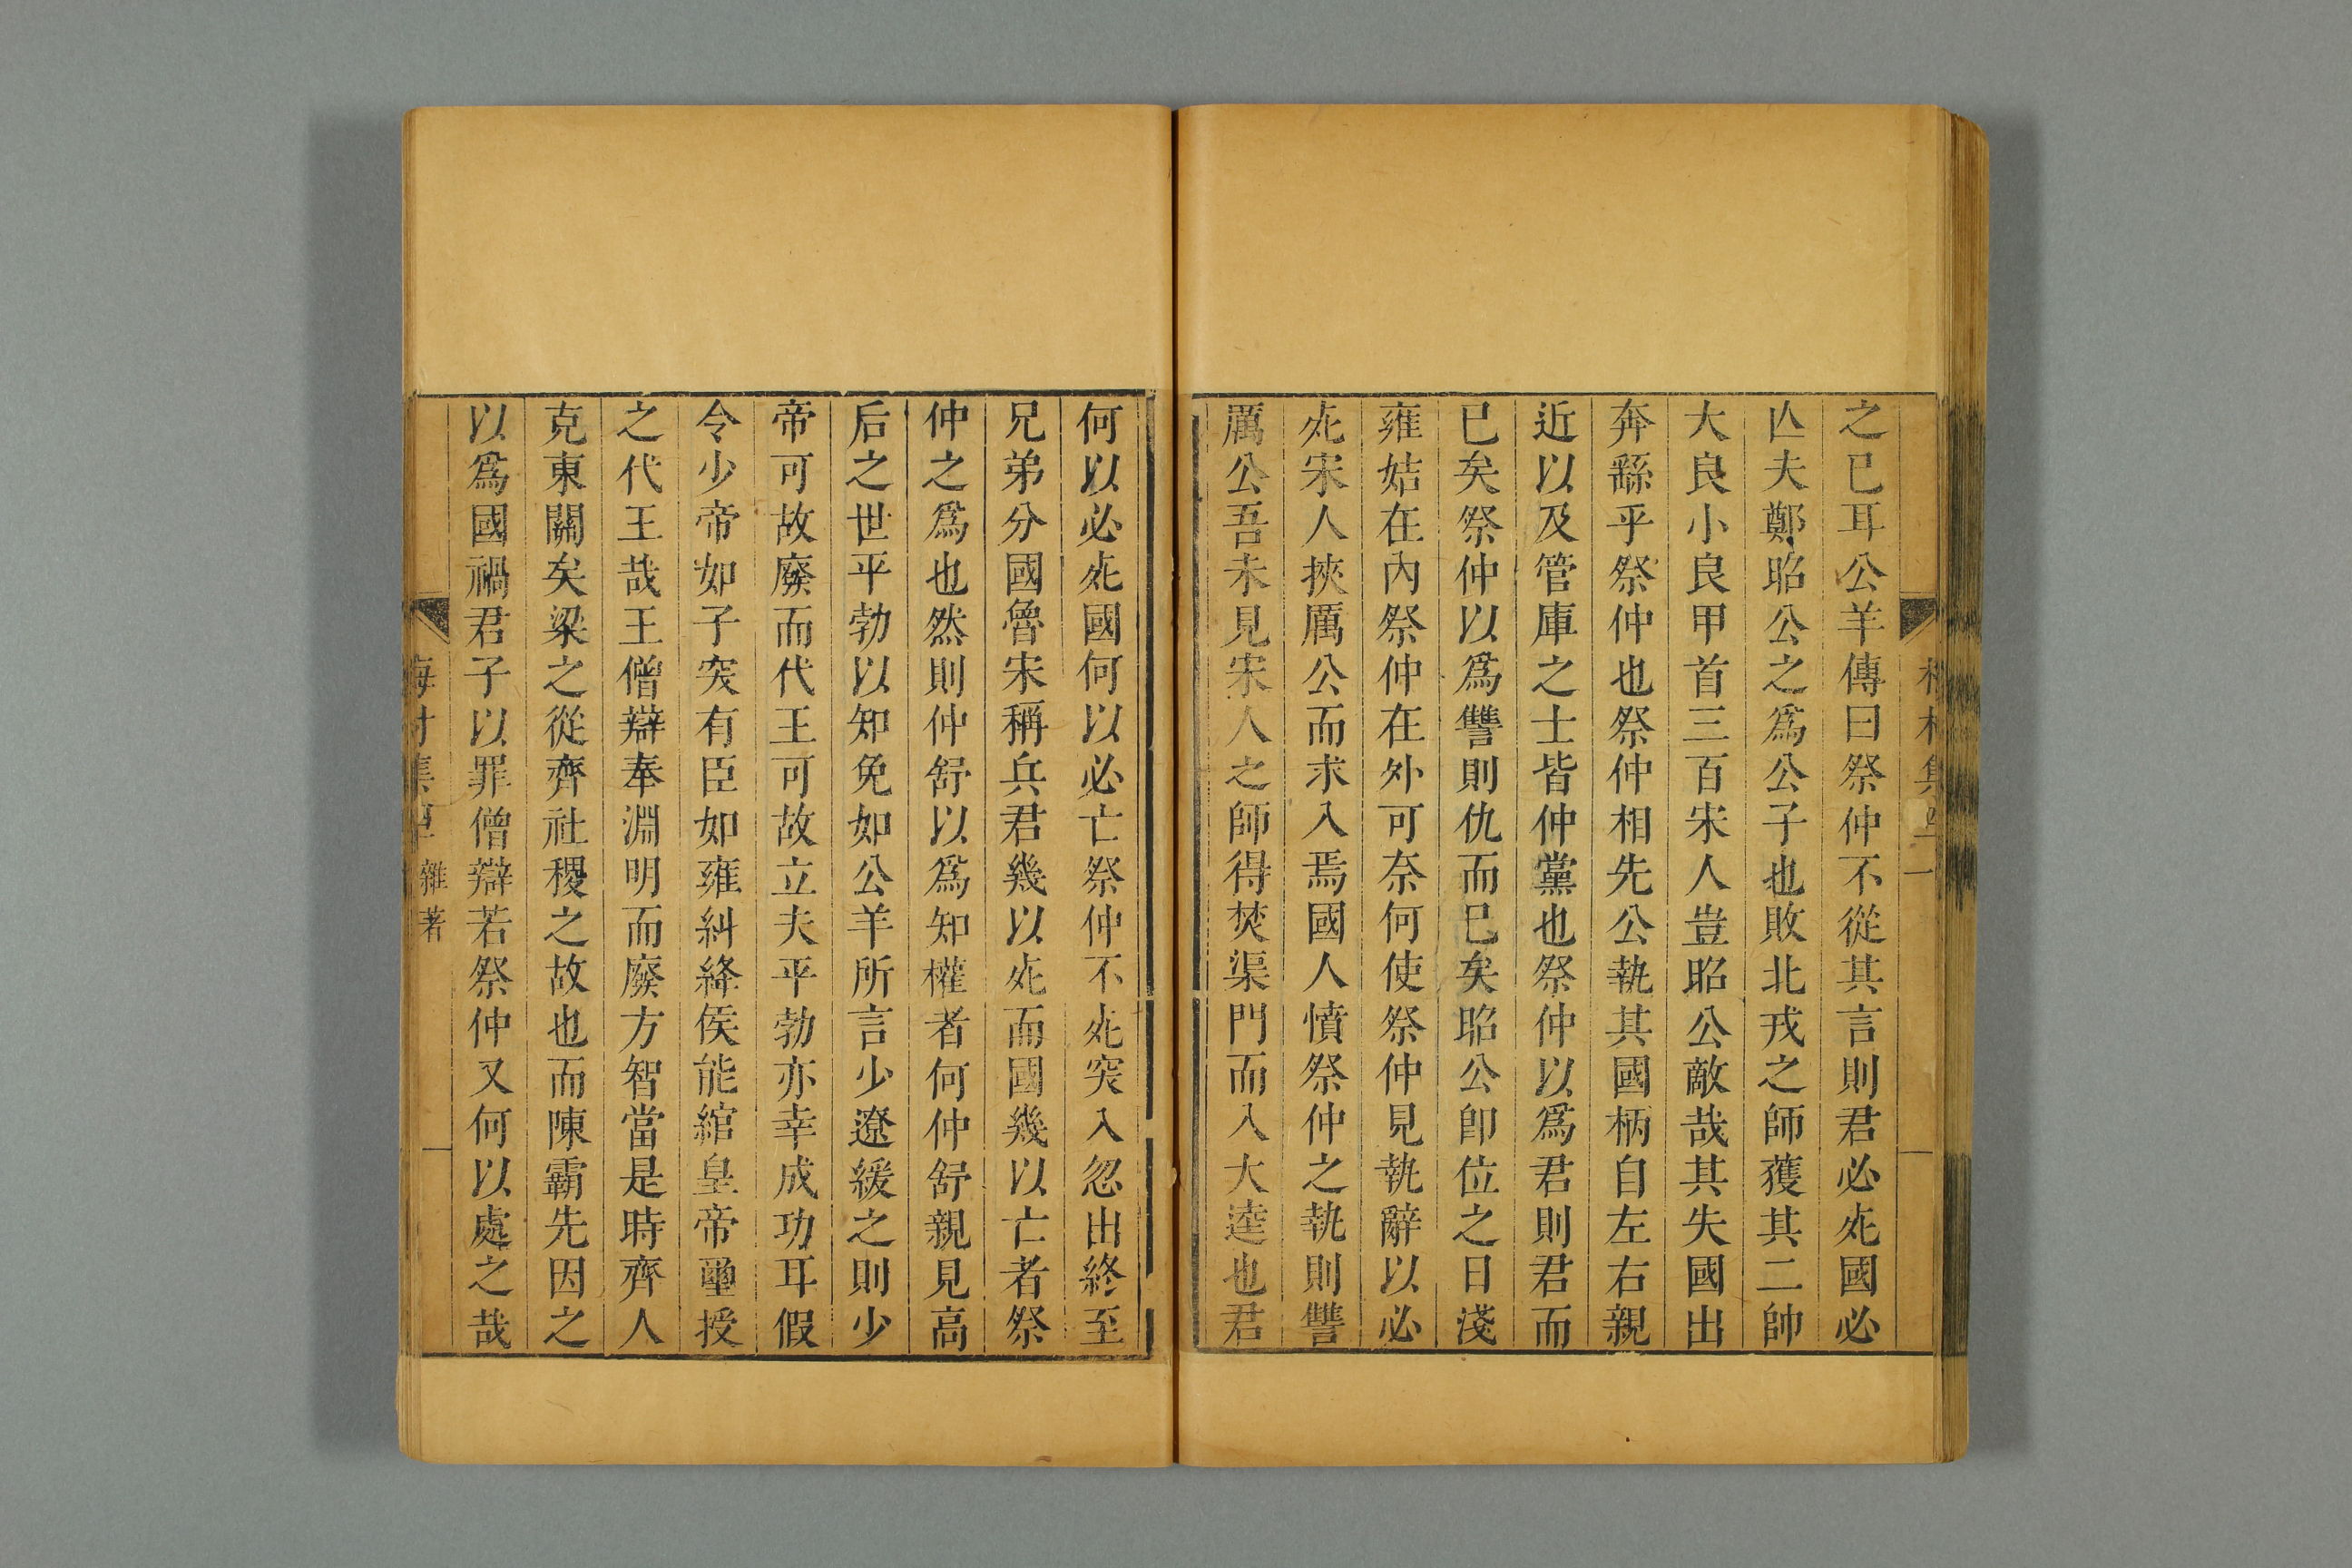 之已耳公羊傳曰祭仲不從其言則君必死國必
亾夫鄭昭公之爲公子也敗北戎之師獲其二帥
大良小良甲首三百宋人豈昭公敵哉其失國出
奔繇乎祭仲也祭仲相先公執其國柄自左右親
近以及管庫之士皆仲黨也祭仲以爲君則君而
已矣祭仲以爲讐則仇而已矣昭公卽位之日淺
雍姞在內祭仲在外可奈何使祭仲見執辭以必
死宋人挾厲公而求入焉國人憤祭仲之執則讐
厲公吾未見宋人之師得焚渠門而入大逵也君
何以必死國何以必亡祭仲不死突入忽出終至
兄弟分國魯宋稱兵君幾以死而國幾以亡者祭
仲之爲也然則仲舒以爲知權者何仲舒親見高
后之世平勃以知免如公羊所言少遼緩之則少
帝可故廢而代王可故立夫平勃亦幸成功耳假
令少帝如子突有臣如雍糾絳侯能綰皇帝璽授
之代王哉王僧辯奉淵明而廢方智當是時齊人
克東關矣梁之從齊社稷之故也而陳霸先因之
以爲國禍君子以罪僧辯若祭仲又何以處之哉
雜著